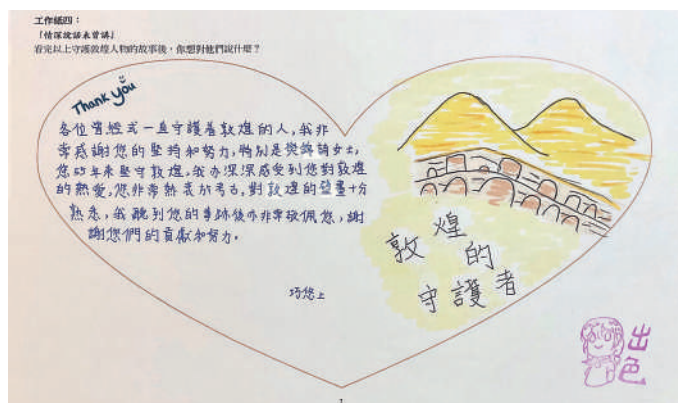 工作紙四：
「情深說話未曾講」
看完以上守護敦煌人物的故事後，你想對他們說什麼？
Thank you
各位曾經或一直守護着敦煌的人，我非
常感謝您的堅持和努力，特別是樊錦詩女士，
您53年來堅守敦煌，我亦深深感受到您對敦煌
的熱愛，您非常熱衷於考古，對敦煌的壁畫十分
熟悉，我聽到您的事跡後亦非常敬佩您，謝
謝您們的貢獻和努力。
巧悠上
敦煌
的
守護者
出色